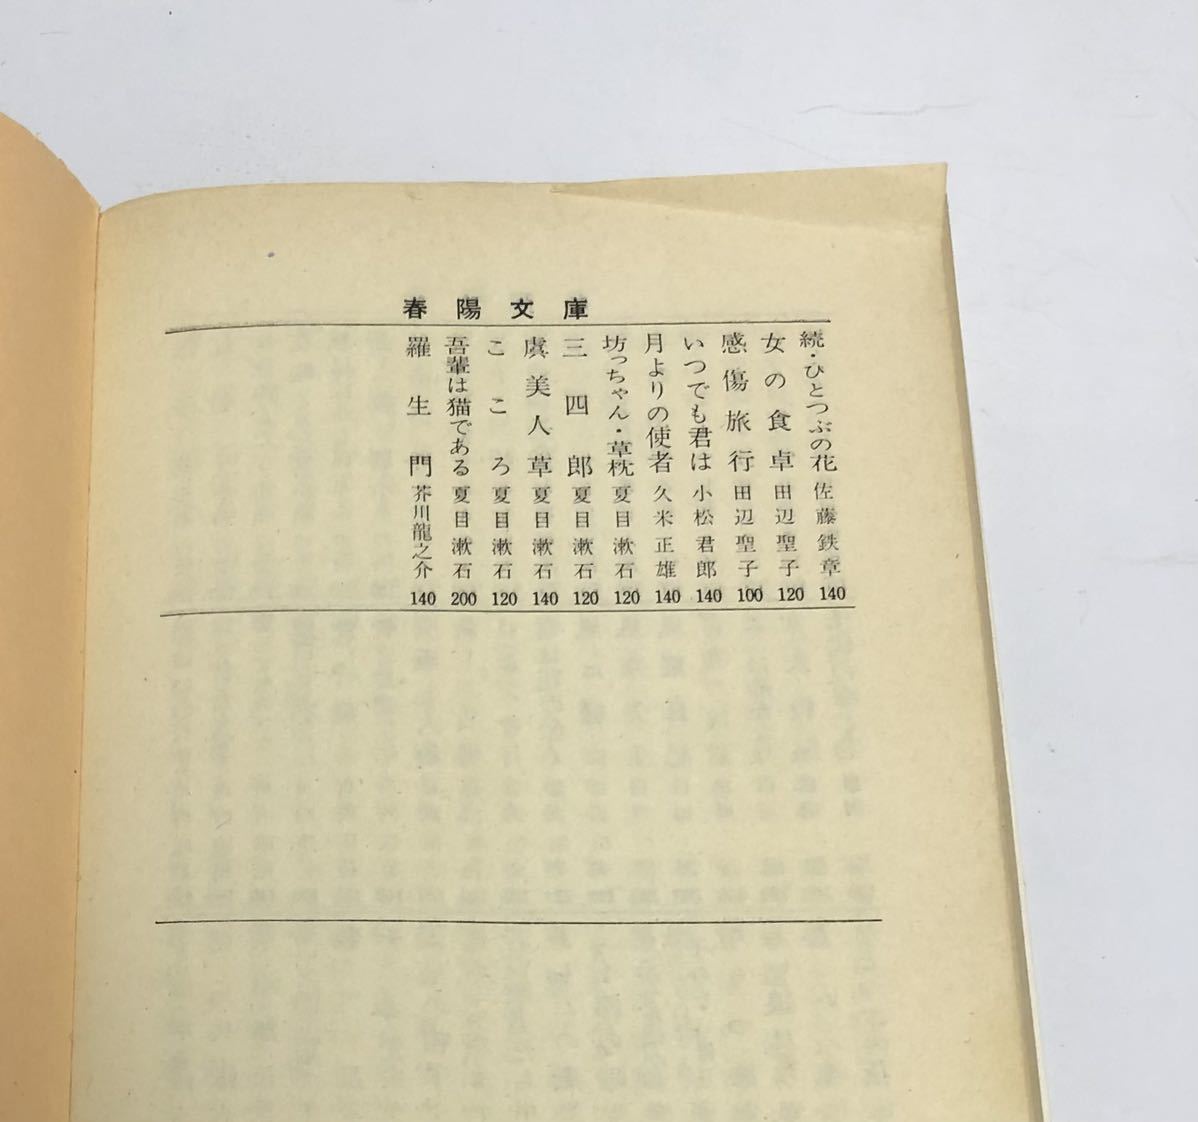 春陽文庫
続・ひとつぶの花 佐藤鉄章 140
女の食卓 田辺聖子 120
感傷旅行 田辺聖子 100
いつでも君は 小松君郎 140
月よりの使者 久米正雄 140
坊っちゃん・草枕 夏目漱石 120
三四郎 夏目漱石 120
虞美人草 夏目漱石 140
こころ 夏目漱石 120
吾輩は猫である 夏目漱石 200
羅生門 芥川龍之介 140